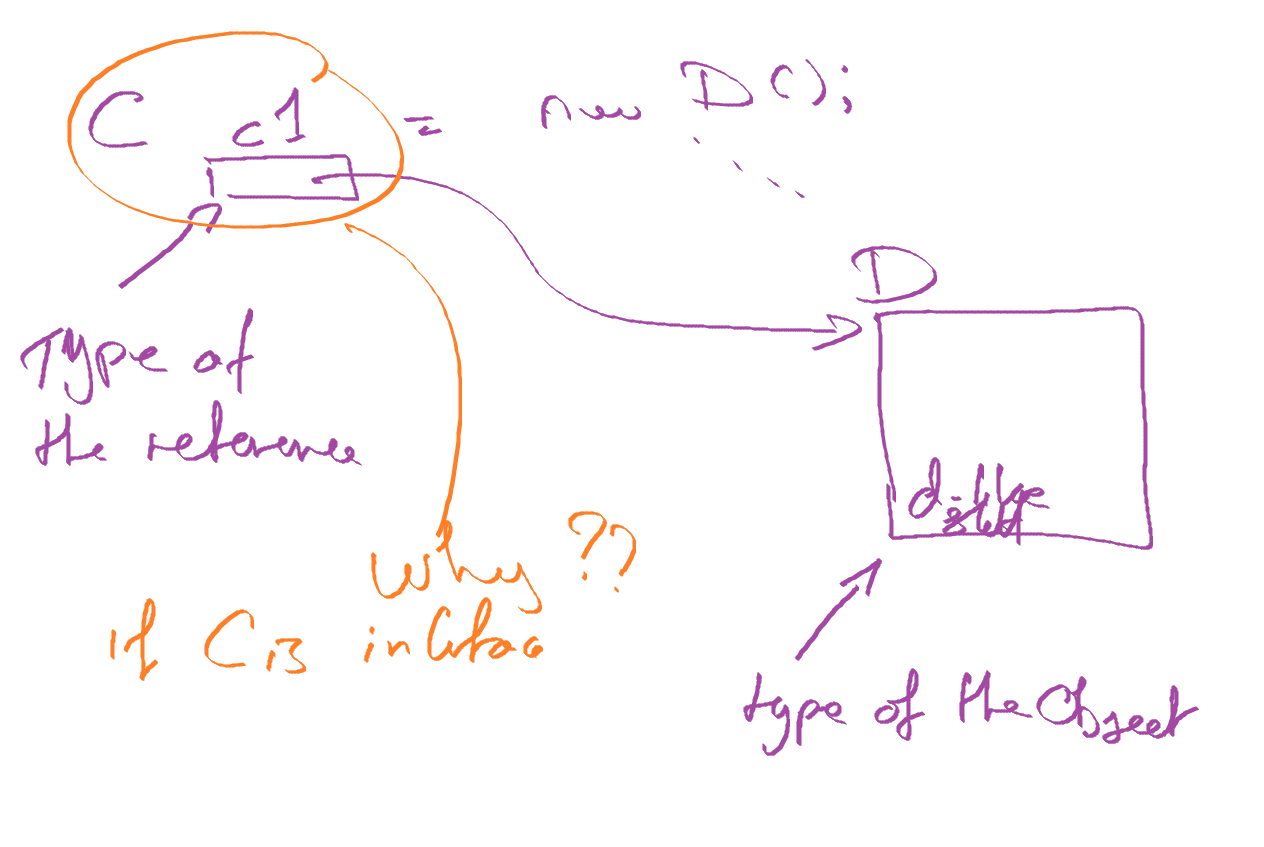 C c1 = new D();
D
Type of
the reference
Why ??
if C is interface
type of the Object